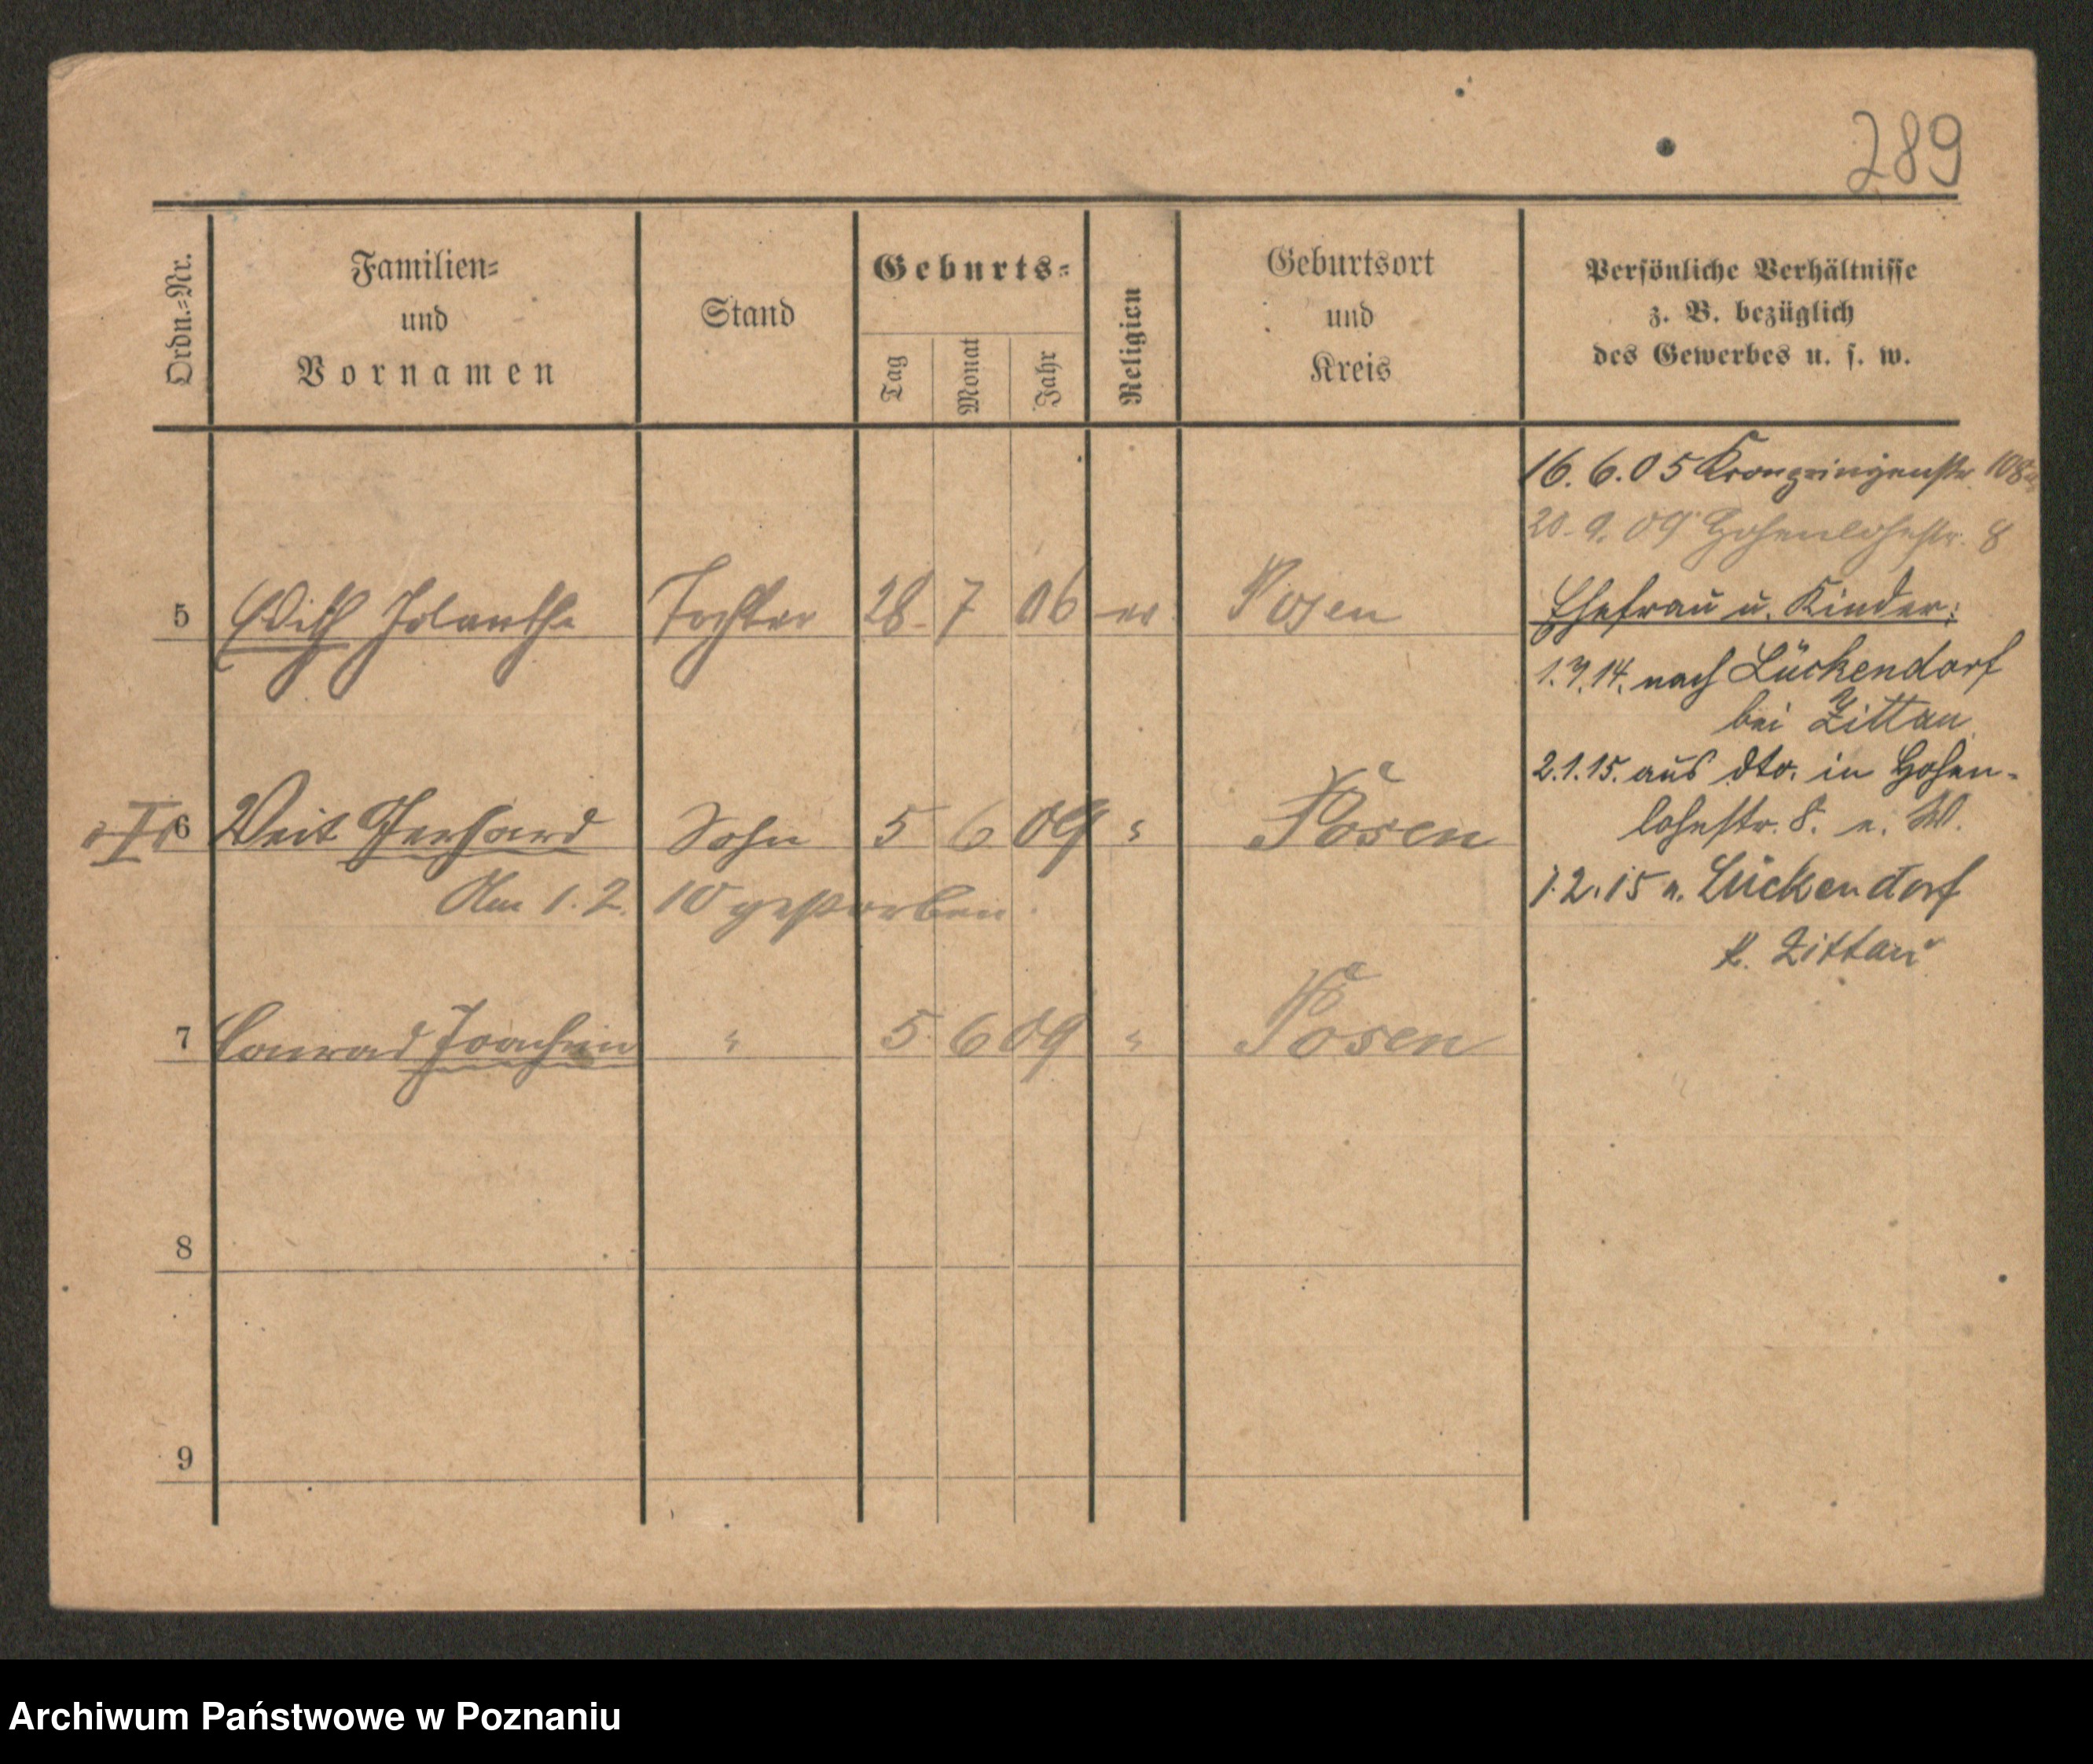 289
Ordn.-Nr.
Familien-
und
Vornamen
Stand
Geburts-
Tag
Monat
Jahr
Religion
Geburtsort
und
Kreis
Persönliche Verhältnisse
z. B. bezüglich
des Gewerbes u. s. w.
16. 6. 05 Kronprinzenstr. 108a
20. 9. 09 Hohenlohestr. 8
5 Edith Jolanthe Tochter 28. 7 06 ev. Posen
Ehefrau u. Kinder:
1.7.14. nach Lückendorf
bei Zittau
2.1.15. aus dto. in Hohen-
lohestr. 8. n. W.
6 Veit Gerhard Sohn 5 6 09 " Posen
Am 1. 2. 10 gestorben.
1.2.15 n. Lückendorf
k. Zittau
7 Conrad Joachim " 5. 6 09 " Posen
8
9
Archiwum Państwowe w Poznaniu